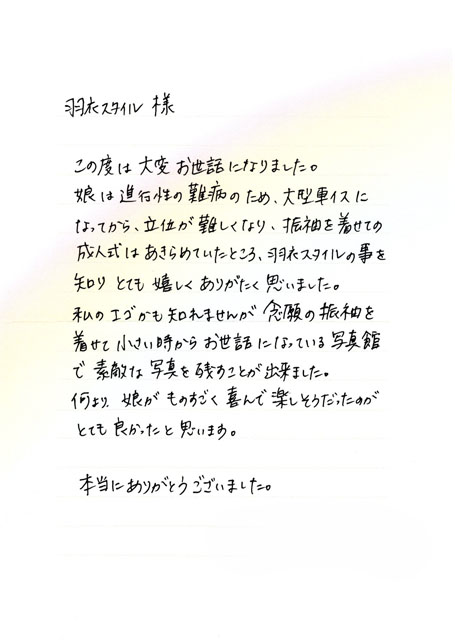 羽衣スタイル 様
この度は大変お世話になりました。
娘は進行性の難病のため、大型車イスに
なってから、立位が難しくなり、振袖を着せての
成人式はあきらめていたところ、羽衣スタイルの事を
知りとても嬉しくありがたく思いました。
私のエゴかも知れませんが念願の振袖を
着せて小さい時からお世話になっている写真館
で素敵な写真を残すことが出来ました。
何より娘がものすごく喜んで楽しそうだったのが
とても良かったと思います。
本当にありがとうございました。